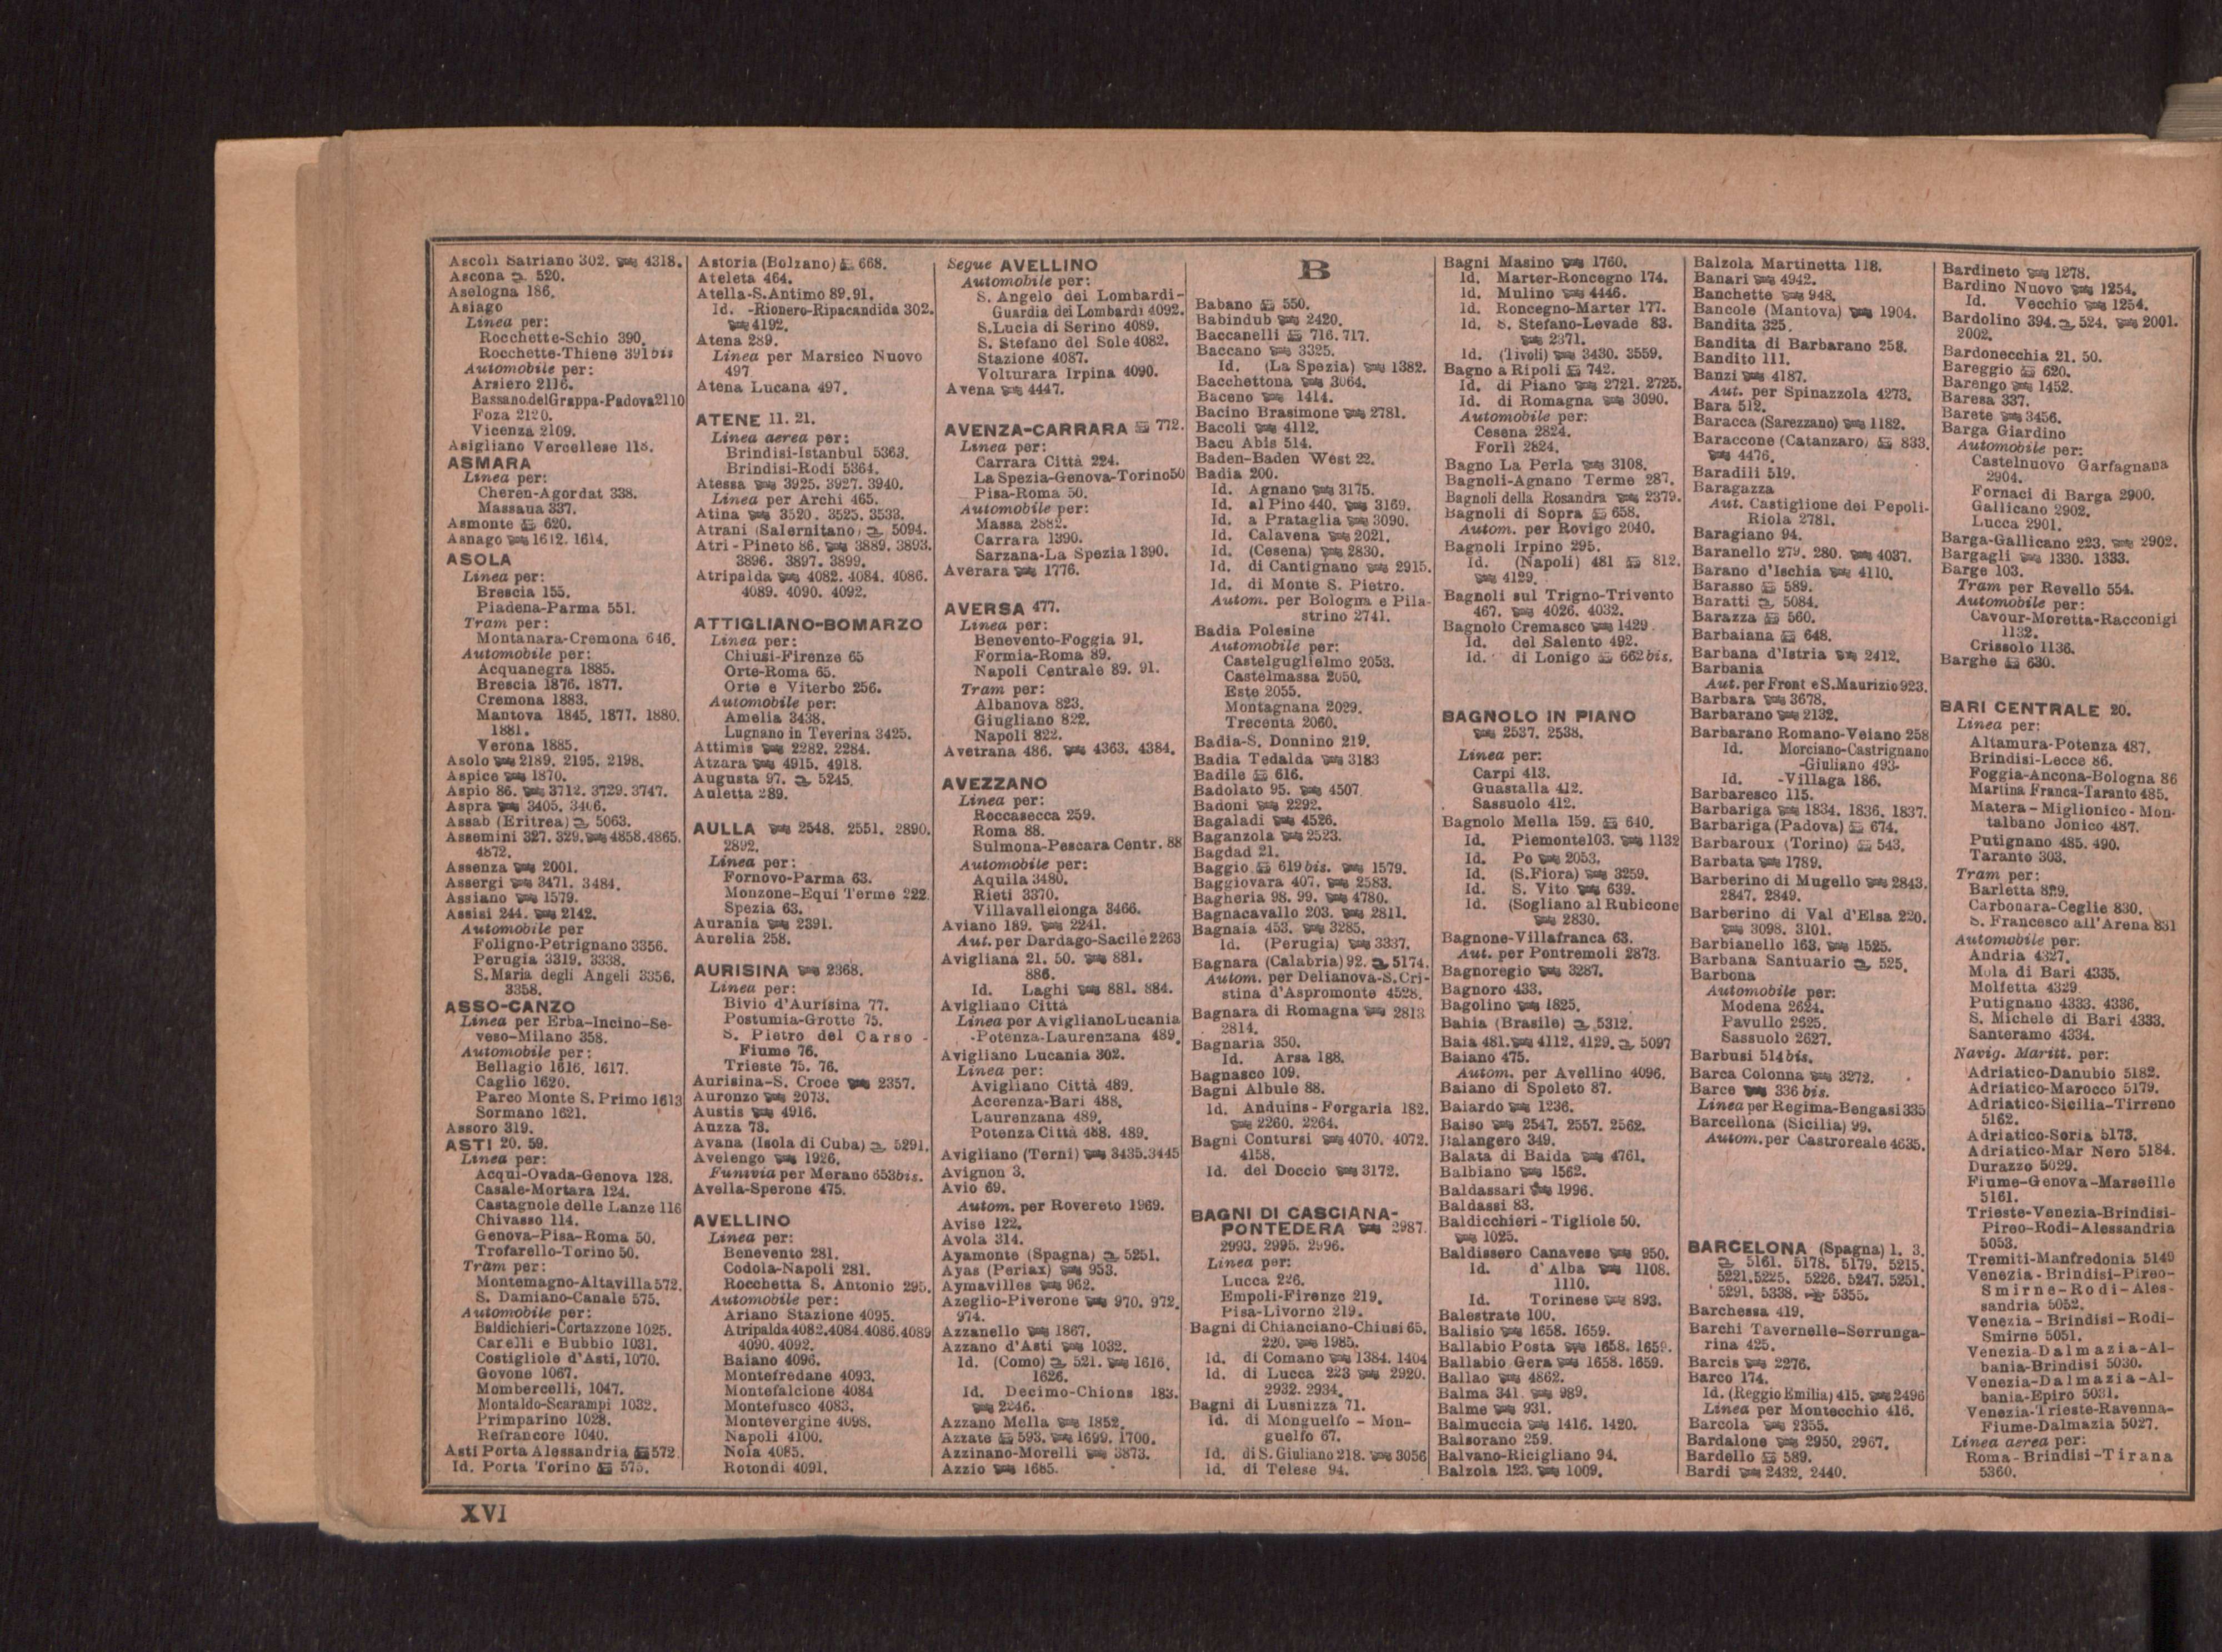 Ascoli Satriano 302. 4318.
Ascona 520.
Aselogna 186.
Asiago
Linea per:
Rocchette-Schio 390.
Rocchette-Thiene 391bis
Automobile per:
Arsiero 2116.
Bassano del Grappa-Padova 2110
Foza 2120.
Vicenza 2109.
Asigliano Vercellese 118.
ASMARA
Linea per:
Cheren-Agordat 338.
Massaua 337.
Asmonte 620.
Asnago 1612. 1614.
ASOLA
Linea per:
Brescia 155.
Piadena-Parma 551.
Tram per:
Montanara-Cremona 646.
Automobile per:
Acquanegra 1885.
Brescia 1876. 1877.
Cremona 1883.
Mantova 1845. 1877. 1880.
1881.
Verona 1885.
Asolo 2189. 2195. 2198.
Aspice 1870.
Aspio 86. 3712. 3729. 3747.
Aspra 3405. 3406.
Assab (Eritrea) 5063.
Assemini 327. 329. 4858. 4865.
4872.
Assenza 2001.
Assergi 3471. 3484.
Assiano 1579.
Assisi 244. 2142.
Automobile per
Foligno-Petrignano 3356.
Perugia 3319. 3338.
S. Maria degli Angeli 3356.
3358.
ASSO-CANZO
Linea per Erba-Incino-Se-
veso-Milano 358.
Automobile per:
Bellagio 1616. 1617.
Caglio 1620.
Parco Monte S. Primo 1613
Sormano 1621.
Assoro 319.
ASTI 20. 59.
Linea per:
Acqui-Ovada-Genova 128.
Casale-Mortara 124.
Castagnole delle Lanze 116
Chivasso 114.
Genova-Pisa-Roma 50.
Trofarello-Torino 50.
Tram per:
Montemagno-Altavilla 572.
S. Damiano-Canale 575.
Automobile per:
Baldichieri-Cortazzone 1025.
Carelli e Bubbio 1031.
Costigliole d'Asti, 1070.
Govone 1067.
Mombercelli, 1047.
Montaldo-Scarampi 1032.
Primparino 1028.
Refrancore 1040.
Asti Porta Alessandria 572
Id. Porta Torino 575.
Astoria (Bolzano) 668.
Ateleta 464.
Atella-S. Antimo 89. 91.
Id. -Rionero-Ripacandida 302.
4192.
Atena 289.
Linea per Marsico Nuovo
497
Atena Lucana 497.
ATENE 11. 21.
Linea aerea per:
Brindisi-Istanbul 5363.
Brindisi-Rodi 5364.
Atessa 3925. 3927. 3940.
Linea per Archi 465.
Atina 3520. 3525. 3533.
Atrani (Salernitano) 5094.
Atri-Pineto 86. 3889. 3893.
3896. 3897. 3899.
Atripalda 4082. 4084. 4086.
4089. 4090. 4092.
ATTIGLIANO-BOMARZO
Linea per:
Chiusi-Firenze 65
Orte-Roma 65.
Orte e Viterbo 256.
Automobile per:
Amelia 3438.
Lugnano in Teverina 3425.
Attimis 2282. 2284.
Atzara 4915. 4918.
Augusta 97. 5245.
Auletta 289.
AULLA 2548. 2551. 2890.
2892.
Linea per:
Fornovo-Parma 63.
Monzone-Equi Terme 222
Spezia 63.
Aurania 2391.
Aurelia 258.
AURISINA 2368.
Linea per:
Bivio d'Aurisina 77.
Postumia-Grotte 75.
S. Pietro del Carso -
Fiume 76.
Trieste 75. 76.
Aurisina-S. Croce 2357.
Auronzo 2073.
Austis 4916.
Auzza 73.
Avana (Isola di Cuba) 5291.
Avelengo 1926.
Funivia per Merano 653bis.
Avella-Sperone 475.
AVELLINO
Linea per:
Benevento 281.
Codola-Napoli 281.
Rocchetta S. Antonio 295.
Automobile per:
Ariano Stazione 4095.
Atripalda 4082. 4084. 4086. 4089
4090. 4092.
Baiano 4096.
Montefredane 4093.
Montefalcione 4084
Montefusco 4083.
Montevergine 4098.
Napoli 4100.
Nola 4085.
Rotondi 4091.
Segue AVELLINO
Automobile per:
S. Angelo dei Lombardi-
Guardia dei Lombardi 4092.
S. Lucia di Serino 4089.
S. Stefano del Sole 4082.
Stazione 4087.
Volturara Irpina 4090.
Avena 4447.
AVENZA-CARRARA 772.
Linea per:
Carrara Città 224.
La Spezia-Genova-Torino 50
Pisa-Roma 50.
Automobile per:
Massa 2882.
Carrara 1390.
Sarzana-La Spezia 1390.
Averara 1776.
AVERSA 477.
Linea per:
Benevento-Foggia 91.
Formia-Roma 89.
Napoli Centrale 89. 91.
Tram per:
Albanova 823.
Giugliano 822.
Napoli 822.
Avetrana 486. 4363. 4384.
AVEZZANO
Linea per:
Roccasecca 259.
Roma 88.
Sulmona-Pescara Centr. 88
Automobile per:
Aquila 3480.
Rieti 3370.
Villavallelonga 3466.
Aviano 189. 2241.
Aut. per Dardago-Sacile 2263
Avigliana 21. 50. 881.
886.
Id. Laghi 881. 884.
Avigliano Città
Linea per Avigliano Lucania
-Potenza-Laurenzana 489.
Avigliano Lucania 302.
Linea per:
Avigliano Città 489.
Acerenza-Bari 488.
Laurenzana 489.
Potenza Città 488. 489.
Avigliano (Terni) 3435. 3445
Avignon 3.
Avio 69.
Autom. per Rovereto 1969.
Avise 122.
Avola 314.
Ayamonte (Spagna) 5251.
Ayas (Periax) 953.
Aymavilles 962.
Azeglio-Piverone 970. 972.
974.
Azzanello 1867.
Azzano d'Asti 1032.
Id. (Como) 521. 1616.
1626.
Id. Decimo-Chions 183.
2246.
Azzano Mella 1852.
Azzate 593. 1699. 1700.
Azzinano-Morelli 3873.
Azzio 1685.
B
Babano 550.
Babindub 2420.
Baccanelli 716. 717.
Baccano 3325.
Id. (La Spezia) 1382.
Bacchettona 3064.
Baceno 1414.
Bacino Brasimone 2781.
Bacoli 4112.
Bacu Abis 514.
Baden-Baden West 22.
Badia 200.
Id. Agnano 3175.
Id. al Pino 440. 3169.
Id. a Prataglia 3090.
Id. Calavena 2021.
Id. (Cesena) 2830.
Id. di Cantignano 2915.
Id. di Monte S. Pietro.
Autom. per Bologna e Pila-
strino 2741.
Badia Polesine
Automobile per:
Castelguglielmo 2053.
Castelmassa 2050.
Este 2055.
Montagnana 2029.
Trecenta 2060.
Badia-S. Donnino 219.
Badia Tedalda 3183
Badile 616.
Badolato 95. 4507
Badoni 2292.
Bagaladi 4526.
Baganzola 2523.
Bagdad 21.
Baggio 619bis. 1579.
Baggiovara 407. 2583.
Bagheria 98. 99. 4780.
Bagnacavallo 203. 2811.
Bagnaia 453. 3285.
Id. (Perugia) 3337.
Bagnara (Calabria) 92. 5174.
Autom. per Delianova-S. Cri-
stina d'Aspromonte 4528.
Bagnara di Romagna 2813
2814.
Bagnaria 350.
Id. Arsa 188.
Bagnasco 109.
Bagni Albule 88.
Id. Anduins-Forgaria 182.
2260. 2264.
Bagni Contursi 4070. 4072.
4158.
Id. del Doccio 3172.
BAGNI DI CASCIANA-
PONTEDERA 2987.
2993. 2995. 2996.
Linea per:
Lucca 226.
Empoli-Firenze 219.
Pisa-Livorno 219.
Bagni di Chianciano-Chiusi 65.
220. 1985.
Id. di Comano 1384. 1404
Id. di Lucca 223 2920.
2932. 2934.
Bagni di Lusnizza 71.
Id. di Monguelfo - Mon-
guelfo 67.
Id. di S. Giuliano 218. 3056
Id. di Telese 94.
Bagni Masino 1760.
Id. Marter-Roncegno 174.
Id. Mulino 4446.
Id. Roncegno-Marter 177.
Id. S. Stefano-Levade 83.
2371.
Id. (Tivoli) 3430. 3559.
Bagno a Ripoli 742.
Id. di Piano 2721. 2725.
Id. di Romagna 3090.
Automobile per:
Cesena 2824.
Forlì 2824.
Bagno La Perla 3108.
Bagnoli-Agnano Terme 287.
Bagnoli della Rosandra 2379.
Bagnoli di Sopra 658.
Autom. per Rovigo 2040.
Bagnoli Irpino 295.
Id. (Napoli) 481 812.
4129.
Bagnoli sul Trigno-Trivento
467. 4026. 4032.
Bagnolo Cremasco 1429
Id. del Salento 492.
Id. di Lonigo 662bis.
BAGNOLO IN PIANO
2537. 2538.
Linea per:
Carpi 413.
Guastalla 412.
Sassuolo 412.
Bagnolo Mella 159. 640.
Id. Piemonte 103. 1132
Id. Po 2053.
Id. (S. Fiora) 3259.
Id. S. Vito 639.
Id. (Sogliano al Rubicone
2830.
Bagnone-Villafranca 63.
Aut. per Pontremoli 2873.
Bagnoregio 3287.
Bagnoro 433.
Bagolino 1825.
Bahia (Brasile) 5312.
Baia 481. 4112. 4129. 5097
Baiano 475.
Autom. per Avellino 4096.
Baiano di Spoleto 87.
Baiardo 1236.
Baiso 2547. 2557. 2562.
Balangero 349.
Balata di Baida 4761.
Balbiano 1562.
Baldassari 1996.
Baldassi 83.
Baldicchieri-Tigliole 50.
1025.
Baldissero Canavese 950.
Id. d'Alba 1108.
1110.
Id. Torinese 893.
Balestrate 100.
Balisio 1658. 1659.
Ballabio Posta 1658. 1659.
Ballabio Gera 1658. 1659.
Ballao 4862.
Balma 341. 989.
Balme 931.
Balmuccia 1416. 1420.
Balsorano 259.
Balvano-Ricigliano 94.
Balzola 123. 1009.
Balzola Martinetta 118.
Banari 4942.
Banchette 948.
Bancole (Mantova) 1904.
Bandita 325.
Bandita di Barbarano 258.
Bandito 111.
Banzi 4187.
Aut. per Spinazzola 4273.
Bara 512.
Baracca (Sarezzano) 1182.
Baraccone (Catanzaro) 833.
4476.
Baradili 519.
Baragazza
Aut. Castiglione dei Pepoli-
Riola 2781.
Baragiano 94.
Baranello 279. 280. 4037.
Barano d'Ischia 4110.
Barasso 589.
Baratti 5084.
Barazza 560.
Barbaiana 648.
Barbana d'Istria 2412.
Barbania
Aut. per Front e S. Maurizio 923.
Barbara 3678.
Barbarano 2132.
Barbarano Romano-Veiano 258
Id. Morciano-Castrignano
-Giuliano 493.
Id. -Villaga 186.
Barbaresco 115.
Barbariga 1834. 1836. 1837.
Barbariga (Padova) 674.
Barbaroux (Torino) 543.
Barbata 1789.
Barberino di Mugello 2843.
2847. 2849.
Barberino di Val d'Elsa 220.
3098. 3101.
Barbianello 163. 1525.
Barbana Santuario 525.
Barbona
Automobile per:
Modena 2624.
Pavullo 2625.
Sassuolo 2627.
Barbusi 514bis.
Barca Colonna 3272.
Barce 336bis.
Linea per Regima-Bengasi 335
Barcellona (Sicilia) 99.
Autom. per Castroreale 4635.
BARCELONA (Spagna) 1. 3.
5161. 5178. 5179. 5215.
5221. 5225. 5226. 5247. 5251.
5291. 5338. 5355.
Barchessa 419.
Barchi Tavernelle-Serrunga-
rina 425.
Barcis 2276.
Barco 174.
Id. (Reggio Emilia) 415. 2496
Linea per Montecchio 416.
Barcola 2355.
Bardalone 2950. 2967.
Bardello 589.
Bardi 2432. 2440.
Bardineto 1278.
Bardino Nuovo 1254.
Id. Vecchio 1254.
Bardolino 394. 524. 2001.
2002.
Bardonecchia 21. 50.
Bareggio 620.
Barengo 1452.
Baresa 337.
Barete 3456.
Barga Giardino
Automobile per:
Castelnuovo Garfagnana
2904.
Fornaci di Barga 2900.
Gallicano 2902.
Lucca 2901.
Barga-Gallicano 223. 2902.
Bargagli 1330. 1333.
Barge 103.
Tram per Revello 554.
Automobile per:
Cavour-Moretta-Racconigi
1132.
Crissolo 1136.
Barghe 630.
BARI CENTRALE 20.
Linea per:
Altamura-Potenza 487.
Brindisi-Lecce 86.
Foggia-Ancona-Bologna 86
Martina Franca-Taranto 485.
Matera-Miglionico-Mon-
talbano Jonico 487.
Putignano 485. 490.
Taranto 303.
Tram per:
Barletta 829.
Carbonara-Ceglie 830.
S. Francesco all'Arena 831
Automobile per:
Andria 4327.
Mola di Bari 4335.
Molfetta 4329
Putignano 4333. 4336.
S. Michele di Bari 4333.
Santeramo 4334.
Navig. Maritt. per:
Adriatico-Danubio 5182.
Adriatico-Marocco 5179.
Adriatico-Sicilia-Tirreno
5162.
Adriatico-Soria 5173.
Adriatico-Mar Nero 5184.
Durazzo 5029.
Fiume-Genova-Marseille
5161.
Trieste-Venezia-Brindisi-
Pireo-Rodi-Alessandria
5053.
Tremiti-Manfredonia 5149
Venezia-Brindisi-Pireo-
Smirne-Rodi-Ales-
sandria 5052.
Venezia-Brindisi-Rodi-
Smirne 5051.
Venezia-Dalmazia-Al-
bania-Brindisi 5030.
Venezia-Dalmazia-Al-
bania-Epiro 5031.
Venezia-Trieste-Ravenna-
Fiume-Dalmazia 5027.
Linea aerea per:
Roma-Brindisi-Tirana
5360.
XVI